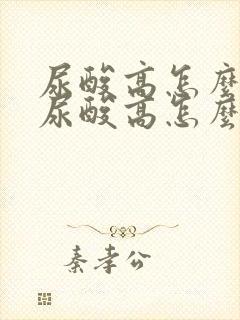 尿酸高怎麼
尿酸高怎麼
秦孝公